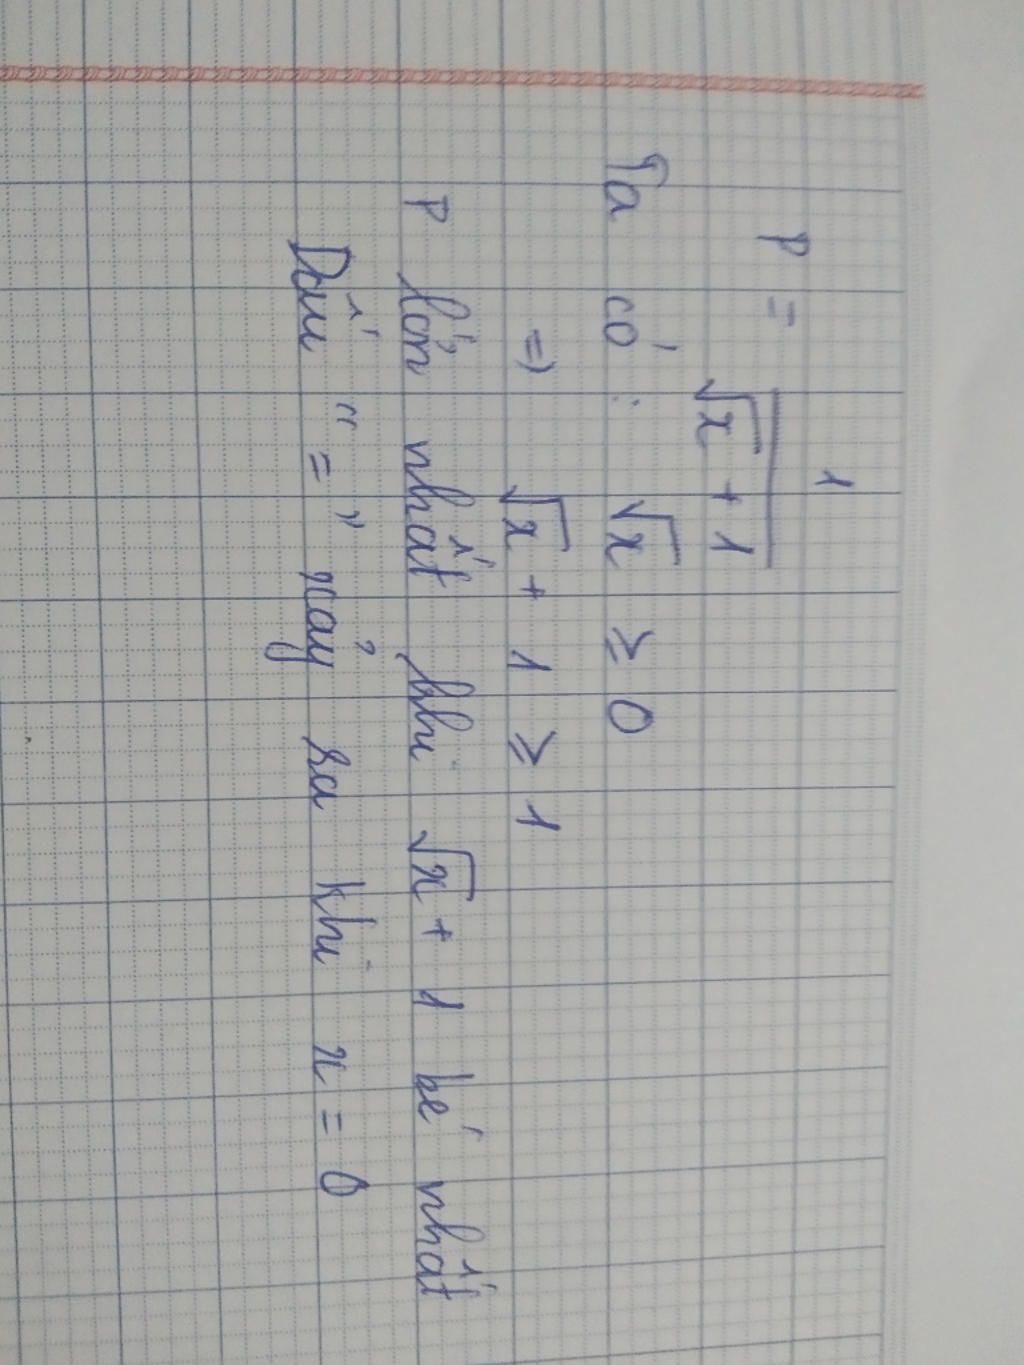 P = 1 / √x + 1
Ta có : √x ≥ 0
=) √x + 1 ≥ 1
P lớn nhất khi √x + 1 bé nhất
Dấu " = " xảy ra khi x = 0